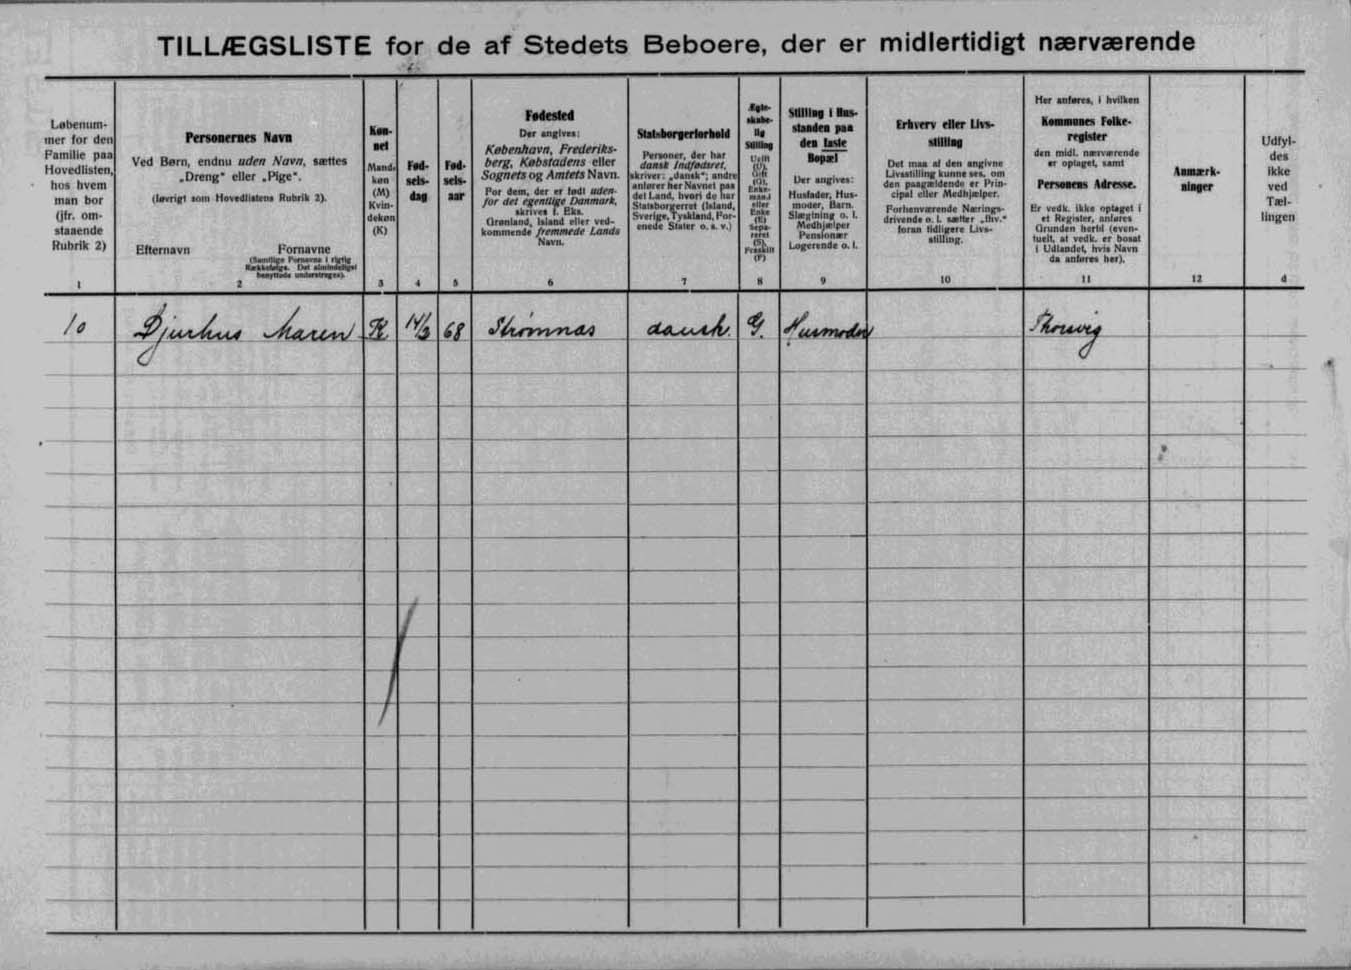 TILLÆGSLISTE for de af Stedets Beboere, der er midlertidigt nærværende
Løbenum-
mer for den
Familie paa
Hovedlisten,
hos hvem
man bor
(jfr. om-
staaende
Rubrik 2)
1
Personernes Navn
Ved Børn, endnu uden Navn, sættes
„Dreng“ eller „Pige“.
(Iøvrigt som Hovedlistens Rubrik 2).
Efternavn Fornavne
(Samtlige Fornavne i rigtig
Rækkefølge. Det almindeligst
benyttede understreges).
2
Køn-
net
Mand-
køn
(M)
Kvin-
dekøn
(K)
3
Fød-
sels-
dag
4
Fød-
sels-
aar
5
Fødested
Der angives:
København, Frederiks-
berg, Købstadens eller
Sognets og Amtets Navn.
For dem, der er født uden-
for det egentlige Danmark,
skrives f. Eks.
Grønland, Island eller ved-
kommende fremmede Lands
Navn.
6
Statsborgerforhold
Personer, der har
dansk Indfødsret,
skriver: „dansk“; andre
anfører her Navnet paa
det Land, hvori de har
Statsborgerret (Island,
Sverige, Tyskland, For-
enede Stater o. s. v.)
7
Ægte-
skabe-
lig
Stilling
Ugift
(U),
Gift
(G),
Enke-
mand
eller
Enke
(E)
Sepa-
reret
(S),
Fraskilt
(F)
8
Stilling i Hus-
standen paa
den faste
Bopæl
Der angives:
Husfader, Hus-
moder, Barn.
Slægtning o. l.
Medhjælper
Pensionær
Logerende o. l.
9
Erhverv eller Livs-
stilling
Det maa af den angivne
Livsstilling kunne ses, om
den paagældende er Prin-
cipal eller Medhjælper.
Forhenværende Nærings-
drivende o. l. sætter „fhv.“
foran tidligere Livs-
stilling.
10
Her anføres, i hvilken
Kommunes Folke-
register
den midl. nærværende
er optaget, samt
Personens Adresse.
Er vedk. ikke optaget i
et Register, anføres
Grunden hertil (even-
tuelt, at vedk. er bosat
i Udlandet, hvis Navn
da anføres her).
11
Anmærk-
ninger
12
Udfyl-
des
ikke
ved
Tæl-
lingen
d
10 Djurhus Maren K 14/3 68 Strømnæs dansk. G. Husmoder Thorsvig